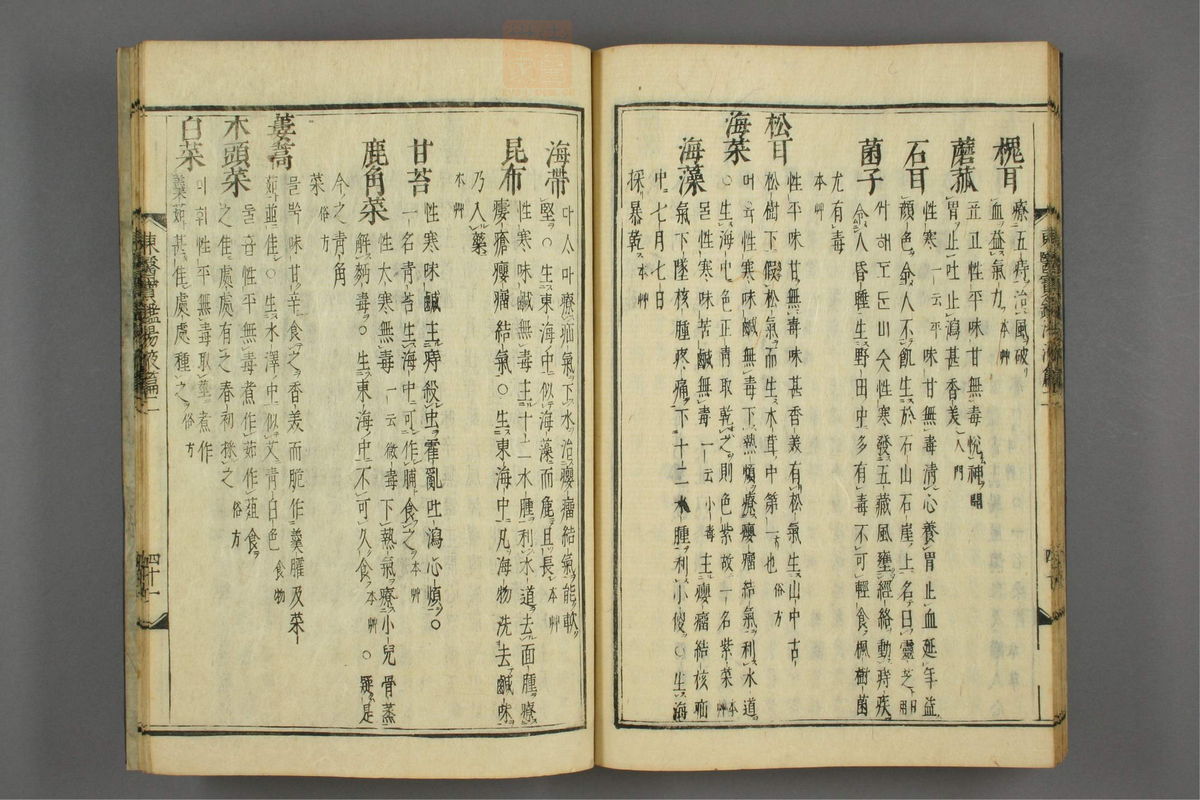 槐耳
療五痔治風破
血益氣力 本艸
蘑菰
오교性平味甘無毒悅神開
胃止吐止瀉甚香美 入門
石耳
性寒 一云平 味甘無毒淸心養胃止血延年益
顔色令人不飢生於石山石崖上名曰靈芝 日用
菌子
性寒發五藏風壅經絡動痔疾
令人昏睡生野田中多有毒不可輕食楓樹菌
尤有毒
本艸
松耳
性平味甘無毒味甚香美有松氣生山中古
松樹下假松氣而生木茸中第一也 俗方
海菜
性寒味鹹無毒下熱煩療癭瘤結氣利水道
○生海中色正靑取乾之則色紫故一名紫菜 本艸
海藻
性寒味苦鹹無毒 一云小毒 主癭瘤結核疝
氣下墜核腫疼痛下十二水腫利小便○生海
中七月七日
採暴乾 本艸
海帶
다亽마療疝氣下水治癭瘤結氣能軟
堅○生東海中似海藻而麁且長 本艸
昆布
性寒味鹹無毒主十二水腫利水道去面腫療
瘻瘡癭瘤結氣○生東海中凡海物洗去鹹味
乃入藥
本艸
甘苔
性寒味鹹主痔殺虫霍亂吐瀉心煩○
一名靑苔生海中可作脯食之 本艸
鹿角菜
性大寒無毒 一云微毒 下熱氣療小兒骨蒸
解麪毒○生東海中不可久食 本艸 ○疑是
今之靑角
菜 俗方
蔞蒿
물쑥味甘辛食之香美而脆作羹臛及菜
茹並佳○生水澤中似艾靑白色 食物
木頭菜
性平無毒煮作茹作葅食
之佳處處有之春初採之 俗方
白菜
머휘性平無毒取莖煮作
羹茹甚佳處處種之 俗方
東醫寶鑑湯液篇二
四十一